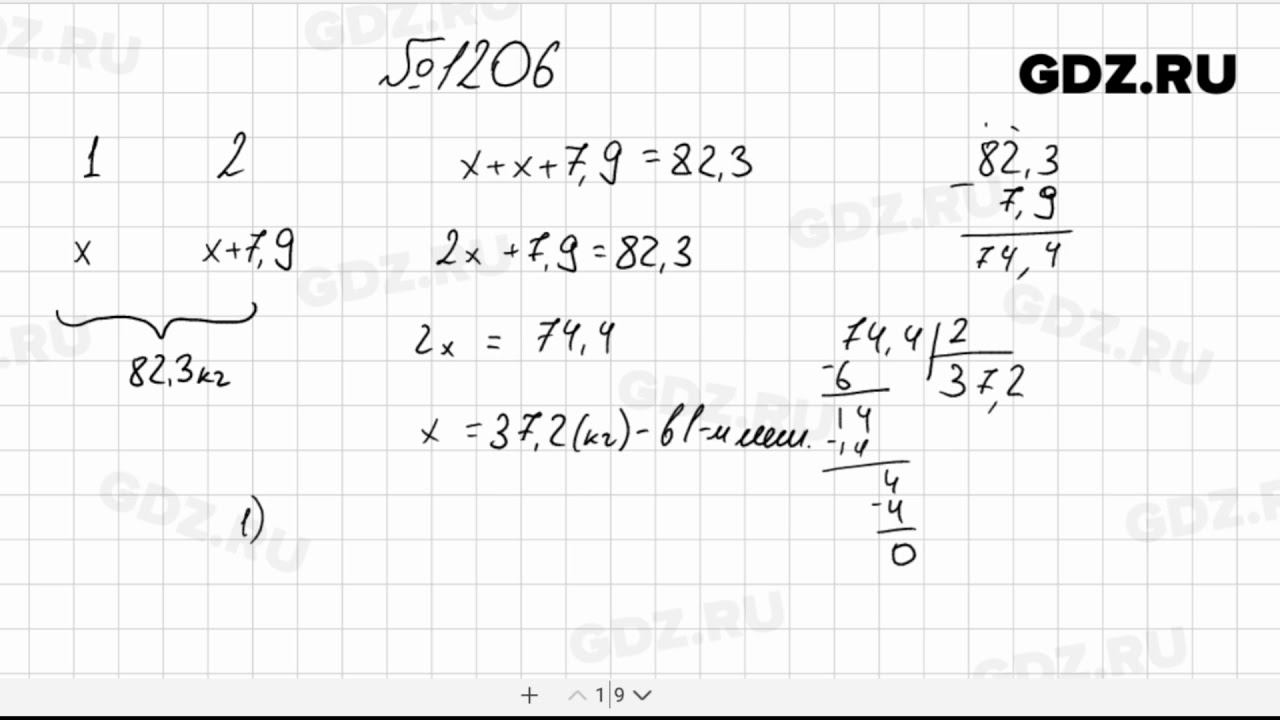 №1206
GDZ.RU
1 2
x x+7,9
82,3кг
x+x+7,9=82,3
2x+7,9=82,3
2x = 74,4
x =37,2(кг)-в 1-м меш.
1)
82,3
- 7,9
74,4
74,4 2
-6 37,2
14
-14
4
-4
0
+ 1|9